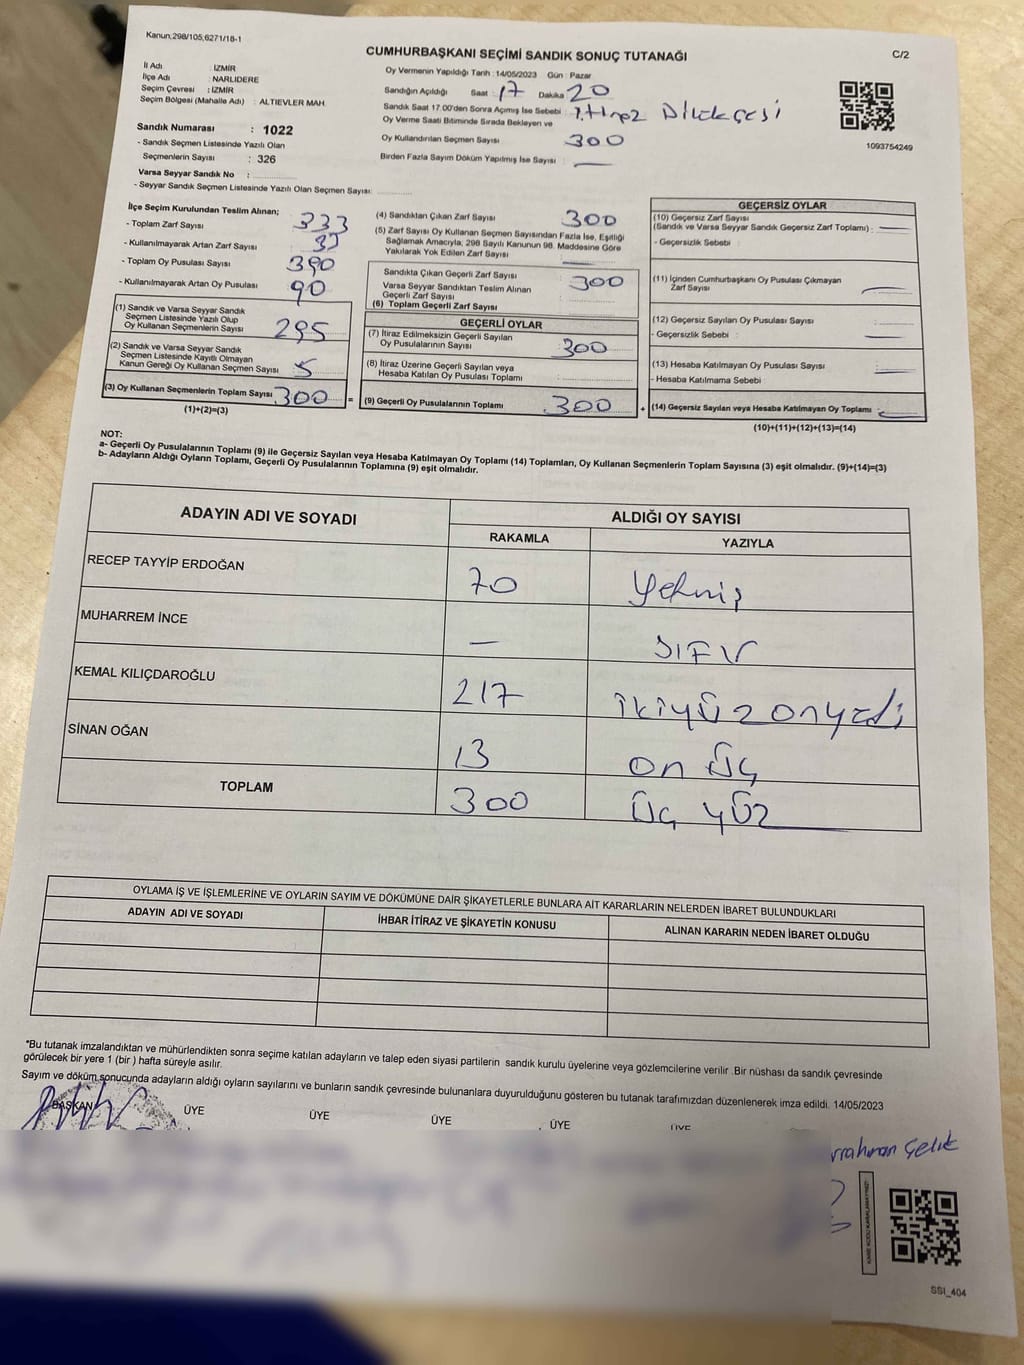 Kanun,298/105,6271/18-1
CUMHURBAŞKANI SEÇİMİ SANDIK SONUÇ TUTANAĞI
C/2
İl Adı : İZMİR
İlçe Adı : NARLIDERE
Seçim Çevresi : İZMİR
Seçim Bölgesi (Mahalle Adı) : ALTIEVLER MAH.
Sandık Numarası : 1022
- Sandık Seçmen Listesinde Yazılı Olan
Seçmenlerin Sayısı : 326
Varsa Seyyar Sandık No :
- Seyyar Sandık Seçmen Listesinde Yazılı Olan Seçmen Sayısı:
Oy Vermenin Yapıldığı Tarih :14/05/2023 Gün : Pazar
Sandığın Açıldığı Saat : 17 Dakika 20
Sandık Saat 17.00'den Sonra Açımış İse Sebebi : Dilekçesi
Oy Verme Saati Bitiminde Sırada Bekleyen ve
Oy Kullandırılan Seçmen Sayısı 300
Birden Fazla Sayım Döküm Yapılmış İse Sayısı : —
1093754249
İlçe Seçim Kurulundan Teslim Alınan;
- Toplam Zarf Sayısı 333
- Kullanılmayarak Artan Zarf Sayısı
- Toplam Oy Pusulası Sayısı 390
- Kullanılmayarak Artan Oy Pusulası 90
(1) Sandık ve Varsa Seyyar Sandık
Seçmen Listesinde Yazılı Olup
Oy Kullanan Seçmenlerin Sayısı 295
(2) Sandık ve Varsa Seyyar Sandık
Seçmen Listesinde Kayıtlı Olmayan
Kanun Gereği Oy Kullanan Seçmen Sayısı 5
(3) Oy Kullanan Seçmenlerin Toplam Sayısı 300 =
(1)+(2)=(3)
(4) Sandıktan Çıkan Zarf Sayısı 300
(5) Zarf Sayısı Oy Kullanan Seçmen Sayısından Fazla İse, Eşitliği
Sağlamak Amacıyla, 298 Sayılı Kanunun 98. Maddesine Göre
Yakılarak Yok Edilen Zarf Sayısı —
Sandıkta Çıkan Geçerli Zarf Sayısı 300
Varsa Seyyar Sandıktan Teslim Alınan
Geçerli Zarf Sayısı
(6) Toplam Geçerli Zarf Sayısı
GEÇERLİ OYLAR
(7) İtiraz Edilmeksizin Geçerli Sayılan
Oy Pusulalarının Sayısı 300
(8) İtiraz Üzerine Geçerli Sayılan veya
Hesaba Katılan Oy Pusulası Toplamı
(9) Geçerli Oy Pusulalarının Toplamı 300 +
GEÇERSİZ OYLAR
(10) Geçersiz Zarf Sayısı
(Sandık ve Varsa Seyyar Sandık Geçersiz Zarf Toplamı) : —
- Geçersizlik Sebebi :
(11) İçinden Cumhurbaşkanı Oy Pusulası Çıkmayan
Zarf Sayısı —
(12) Geçersiz Sayılan Oy Pusulası Sayısı :
- Geçersizlik Sebebi : —
(13) Hesaba Katılmayan Oy Pusulası Sayısı : —
- Hesaba Katılmama Sebebi
(14) Geçersiz Sayılan veya Hesaba Katılmayan Oy Toplamı : —
(10)+(11)+(12)+(13)=(14)
NOT:
a- Geçerli Oy Pusulalarının Toplamı (9) ile Geçersiz Sayılan veya Hesaba Katılmayan Oy Toplamı (14) Toplamları, Oy Kullanan Seçmenlerin Toplam Sayısına (3) eşit olmalıdır. (9)+(14)=(3)
b- Adayların Aldığı Oyların Toplamı, Geçerli Oy Pusulalarının Toplamına (9) eşit olmalıdır.
ADAYIN ADI VE SOYADI ALDIĞI OY SAYISI
RAKAMLA YAZIYLA
RECEP TAYYİP ERDOĞAN 70 Yetmiş
MUHARREM İNCE — SIFIR
KEMAL KILIÇDAROĞLU 217 ikiyüzonyedi
SİNAN OĞAN 13 on üç
TOPLAM 300 Üç yüz
OYLAMA İŞ VE İŞLEMLERİNE VE OYLARIN SAYIM VE DÖKÜMÜNE DAİR ŞİKAYETLERLE BUNLARA AİT KARARLARIN NELERDEN İBARET BULUNDUKLARI
ADAYIN ADI VE SOYADI İHBAR İTİRAZ VE ŞİKAYETİN KONUSU ALINAN KARARIN NEDEN İBARET OLDUĞU
*Bu tutanak imzalandıktan ve mühürlendikten sonra seçime katılan adayların ve talep eden siyasi partilerin sandık kurulu üyelerine veya gözlemcilerine verilir .Bir nüshası da sandık çevresinde
görülecek bir yere 1 (bir ) hafta süreyle asılır.
Sayım ve döküm sonucunda adayların aldığı oyların sayılarını ve bunların sandık çevresinde bulunanlara duyurulduğunu gösteren bu tutanak tarafımızdan düzenlenerek imza edildi. 14/05/2023
BAŞKAN ÜYE ÜYE ÜYE ÜYE ÜYE
rrahman Çelik
SSI_404